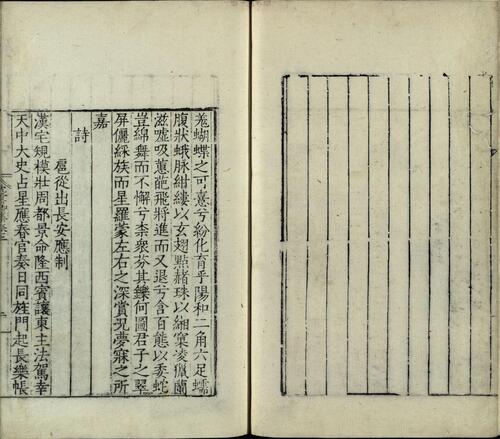 羗蝴蝶之可憙兮紛化育乎陽和二角六足蠕
腹狀蛾脉紺縷以玄翅點赭珠以緗窠凌獵蘭
滋嘘吸蕙葩飛將進而又退兮含百態以委蛇
豈綿舞而不懈兮柰衆芬其鑠何圖君子之翠
屏儷綵族而星羅蒙左右之深賞況夢寐之所
嘉
詩
扈從出長安應制
漢宅規模壯周都景命隆西賓讓東主法駕幸
天中大史占星應春官奏日同旌門起長樂帳